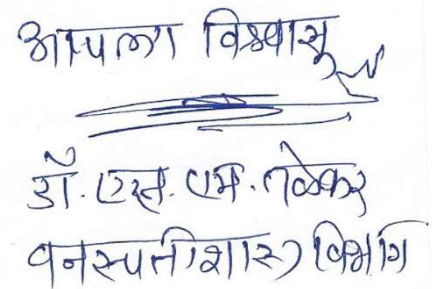 आपला विश्वासू
डॉ. एस. एम. तळेकर
वनस्पतीशास्त्र विभाग